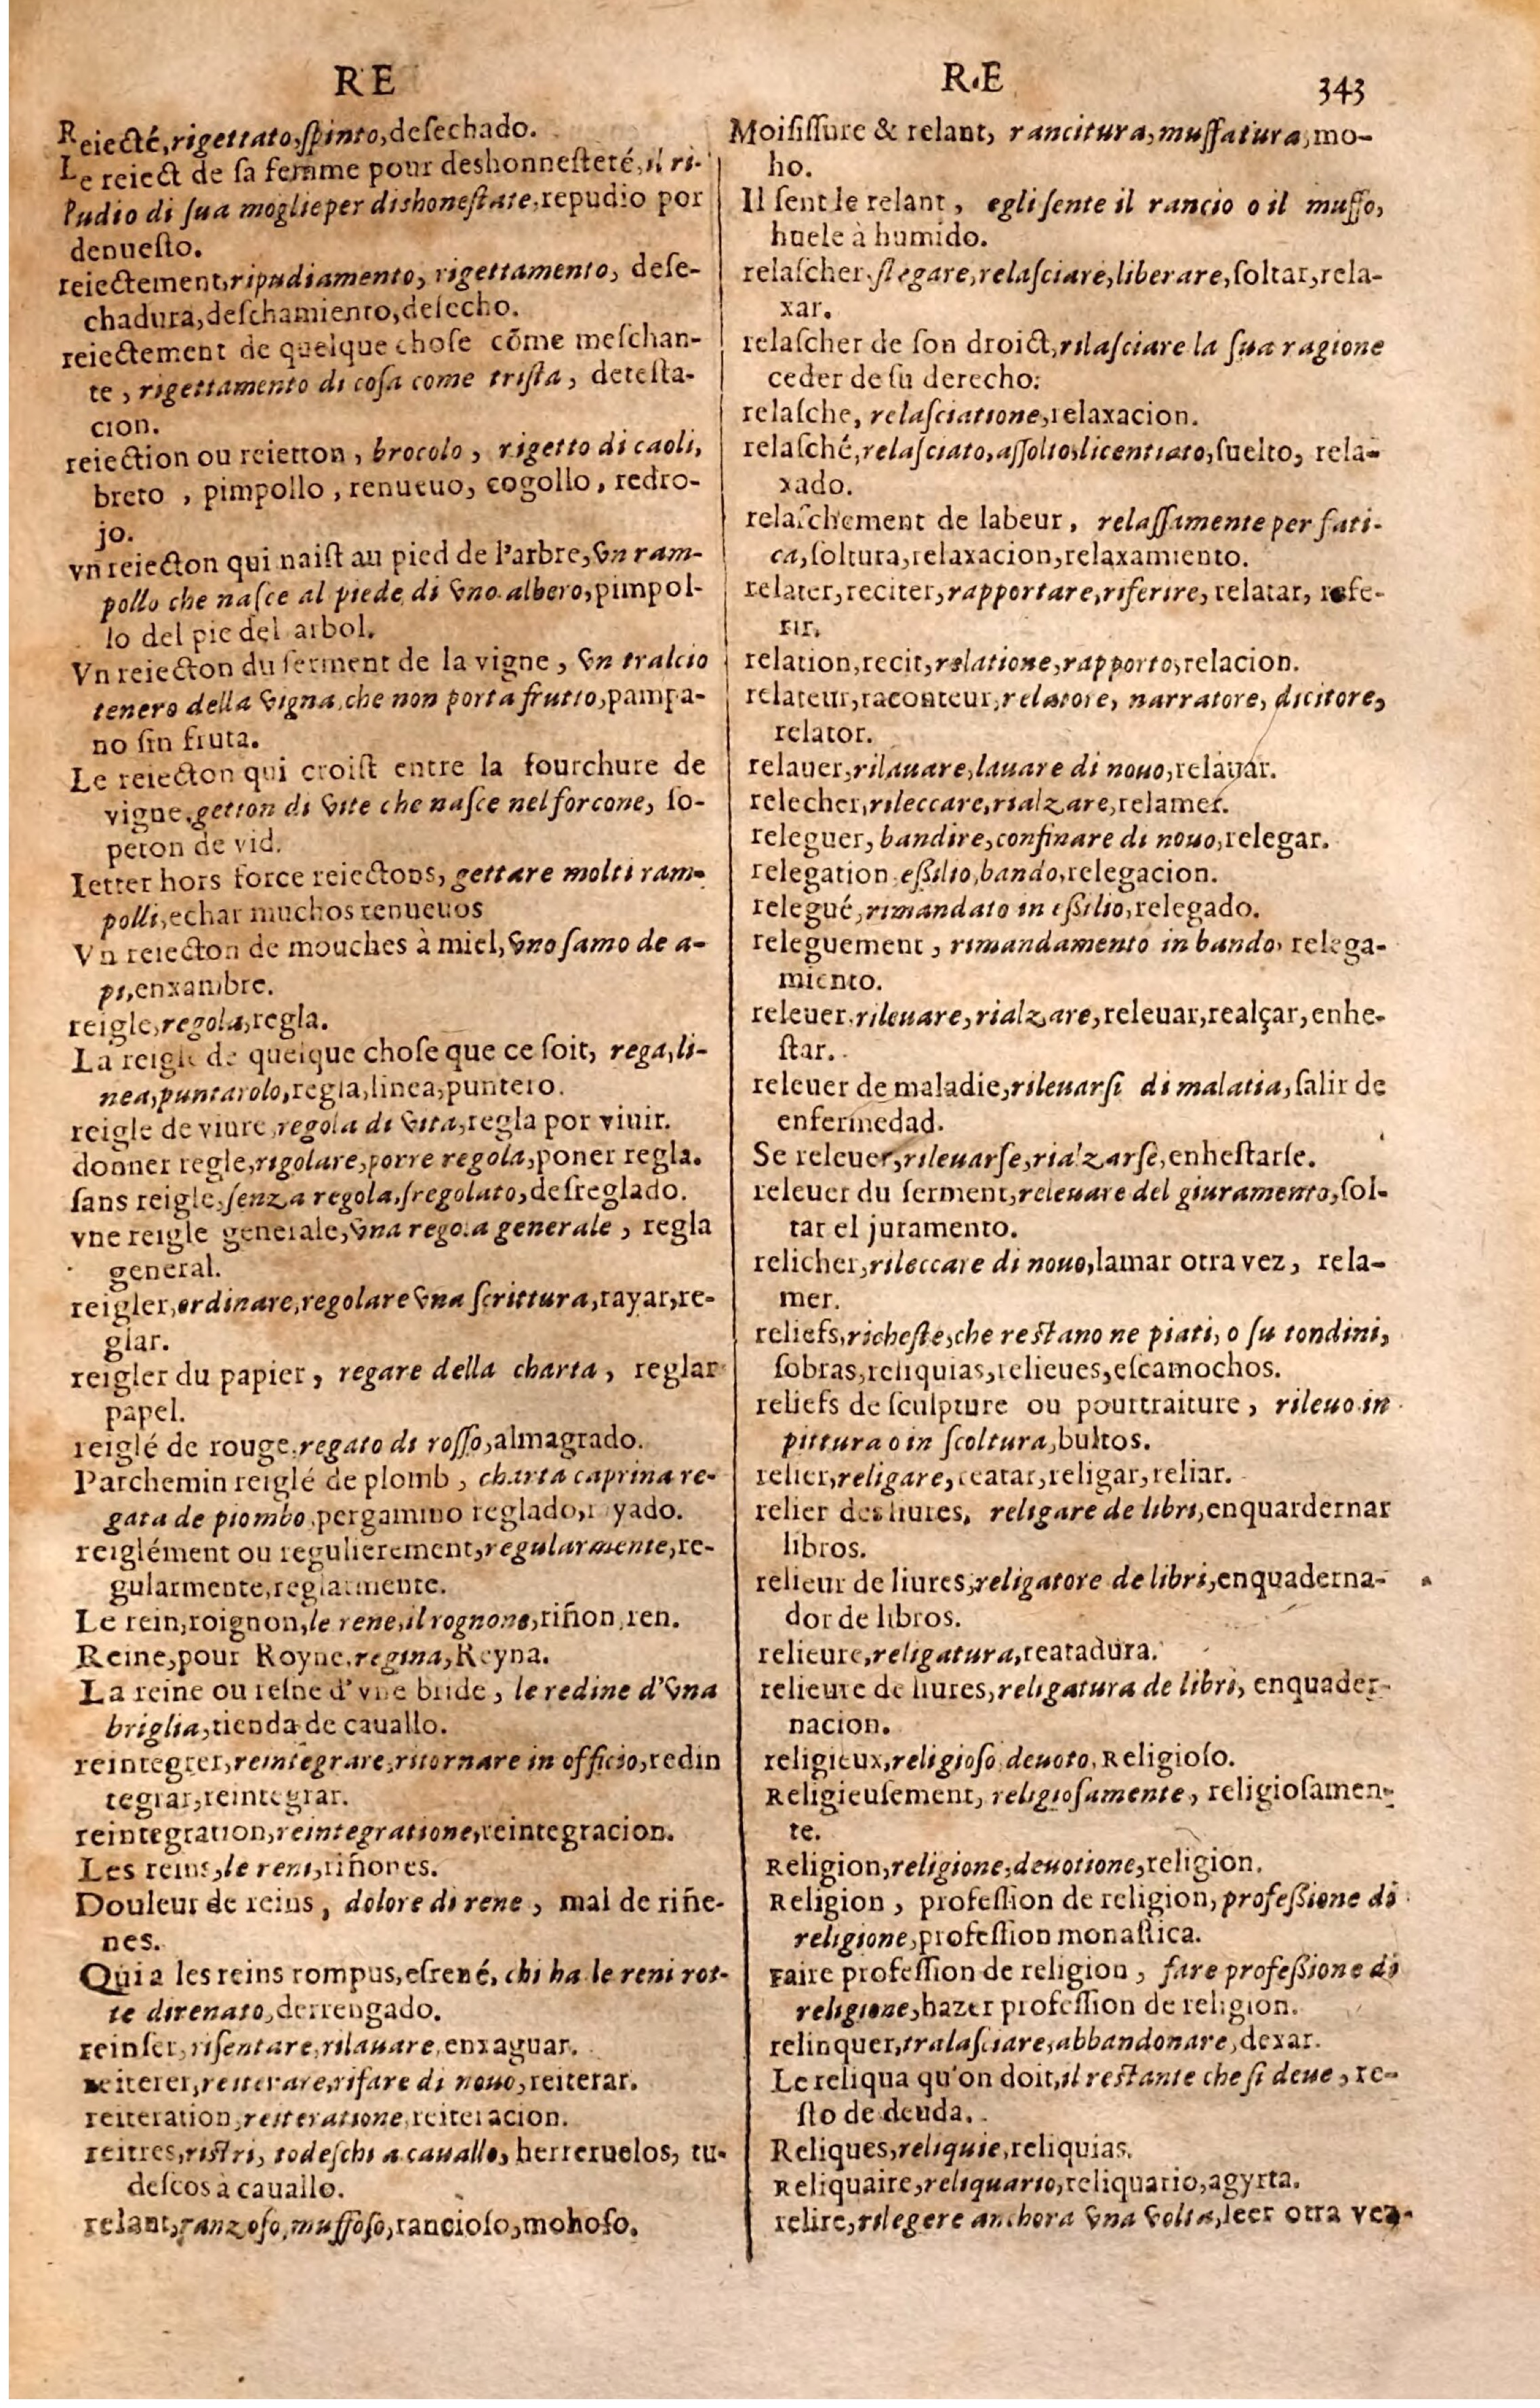 RE
Reiecté, rigettato, spinto, desechado.
Le reiect de sa femme pour deshonnesteté, il ri-
pudio di sua moglie per dishonestate, repudio por
denuesto.
reiectement, ripudiamento, rigettamento, dese-
chadura, deschamiento, desecho.
reiectement de quelque chose cõme meschan-
te, rigettamento di cosa come trista, detesta-
cion.
reiection ou reietton, brocolo, rigetto di caoli,
breto, pimpollo, renueuo, cogollo, redro-
jo.
vn reiecton qui naist au pied de l'arbre, vn ram-
pollo che nasce al piede di vno albero, pimpol-
lo del pie del arbol.
Vn reiecton du serment de la vigne, vn tralcio
tenero della vigna, che non porta frutto, pampa-
no sin fruta.
Le reiecton qui croist entre la fourchure de
vigne, getton di vite che nasce nel forcone, so-
peton de vid.
Ietter hors force reiectons, gettare molti ram-
polli, echar muchos renueuos
Vn reiecton de mouches à miel, vno samo de a-
pi, enxambre.
reigle, regola, regla.
La reigle de quelque chose que ce soit, rega, li-
nea, puntarolo, regla, linea, puntero.
reigle de viure, regola di vita, regla por viuir.
donner regle, rigolare, porre regola, poner regla.
sans reigle, senza regola, sregolato, desreglado.
vne reigle generale, vna regola generale, regla
general.
reigler, ordinare, regolare vna scrittura, rayar, re-
glar.
reigler du papier, regare della charta, reglar
papel.
reiglé de rouge, regato di rosso, almagrado.
Parchemin reiglé de plomb, charta caprina re-
gata de piombo, pergamino reglado, yado.
reiglément ou regulierement, regularmente, re-
gularmente, reglarmente.
Le rein, roignon, le rene, il rognone, riñon, ren.
Reine, pour Royne, regina, Reyna.
La reine ou resne d'vne bride, le redine d'vna
briglia, rienda de cauallo.
reintegrer, reintegrare, ritornare in officio, redin
tegrar, reintegrar.
reintegration, reintegratione, reintegracion.
Les reins, le reni, riñones.
Douleur de reins, dolore di rene, mal de riñe-
nes.
Qui a les reins rompus, esrené, chi ha le reni rot-
te direnato, derrengado.
reinser, risentare, rilauare, enxaguar.
reiterer, reiterare, rifare di nouo, reiterar.
reiteration, reiteratione, reiteracion.
reitres, ristri, todeschi a cauallo, herreruelos, tu-
descos à cauallo.
relant, ranzoso, muffoso, rancioso, mohoso.
R.E 343
Moisissure & relant, rancitura, muffatura, mo-
ho.
Il sent le relant, egli sente il rancio o il muffo,
huele à humido.
relascher, slegare, relasciare, liberare, soltar, rela-
xar.
relascher de son droict, rilasciare la sua ragione
ceder de su derecho.
relasche, relasciatione, relaxacion.
relasché, relasciato, assolto, licentiato, suelto, rela-
xado.
relaschement de labeur, relassamente per fati-
ca, soltura, relaxacion, relaxamiento.
relater, reciter, rapportare, riferire, relatar, refe-
rir.
relation, recit, relatione, rapporto, relacion.
relateur, raconteur, relatore, narratore, dicitore,
relator.
relauer, rilauare, lauare di nouo, relauar.
relecher, rileccare, rialzare, relamer.
releguer, bandire, confinare di nouo, relegar.
relegation, essilio, bando, relegacion.
relegué, rimandato in essilio, relegado.
releguement, rimandamento in bando, relega-
miento.
releuer, rileuare, rialzare, releuar, realçar, enhe-
star.
releuer de maladie, rileuarsi di malatia, salir de
enfermedad.
Se releuer, rileuarse, rialzarse, enhestarse.
releuer du serment, releuare del giuramento, sol-
tar el juramento.
relicher, rileccare di nouo, lamar otra vez, rela-
mer.
reliefs, richeste, che restano ne piati, o su tondini,
sobras, reliquias, relieues, escamochos.
reliefs de sculpture ou pourtraiture, rileuo in
pittura o in scoltura, bultos.
relier, religare, reatar, religar, reliar.
relier des liures, religare de libri, enquardernar
libros.
relieur de liures, religatore de libri, enquaderna-
dor de libros.
relieure, religatura, reatadura.
relieure de liures, religatura de libri, enquader-
nacion.
religieux, religioso, deuoto, Religioso.
Religieusement, religiosamente, religiosamen-
te.
Religion, religione, deuotione, religion.
Religion, profession de religion, professione di
religione, profession monastica.
Faire profession de religion, fare professione di
religione, hazer profession de religion.
relinquer, tralasciare, abbandonare, dexar.
Le reliqua qu'on doit, il restante che si deue, re-
sto de deuda.
Reliques, reliquie, reliquias.
Reliquaire, reliquario, reliquario, agyrta.
relire, rilegere anchora vna volta, leer otra vez.